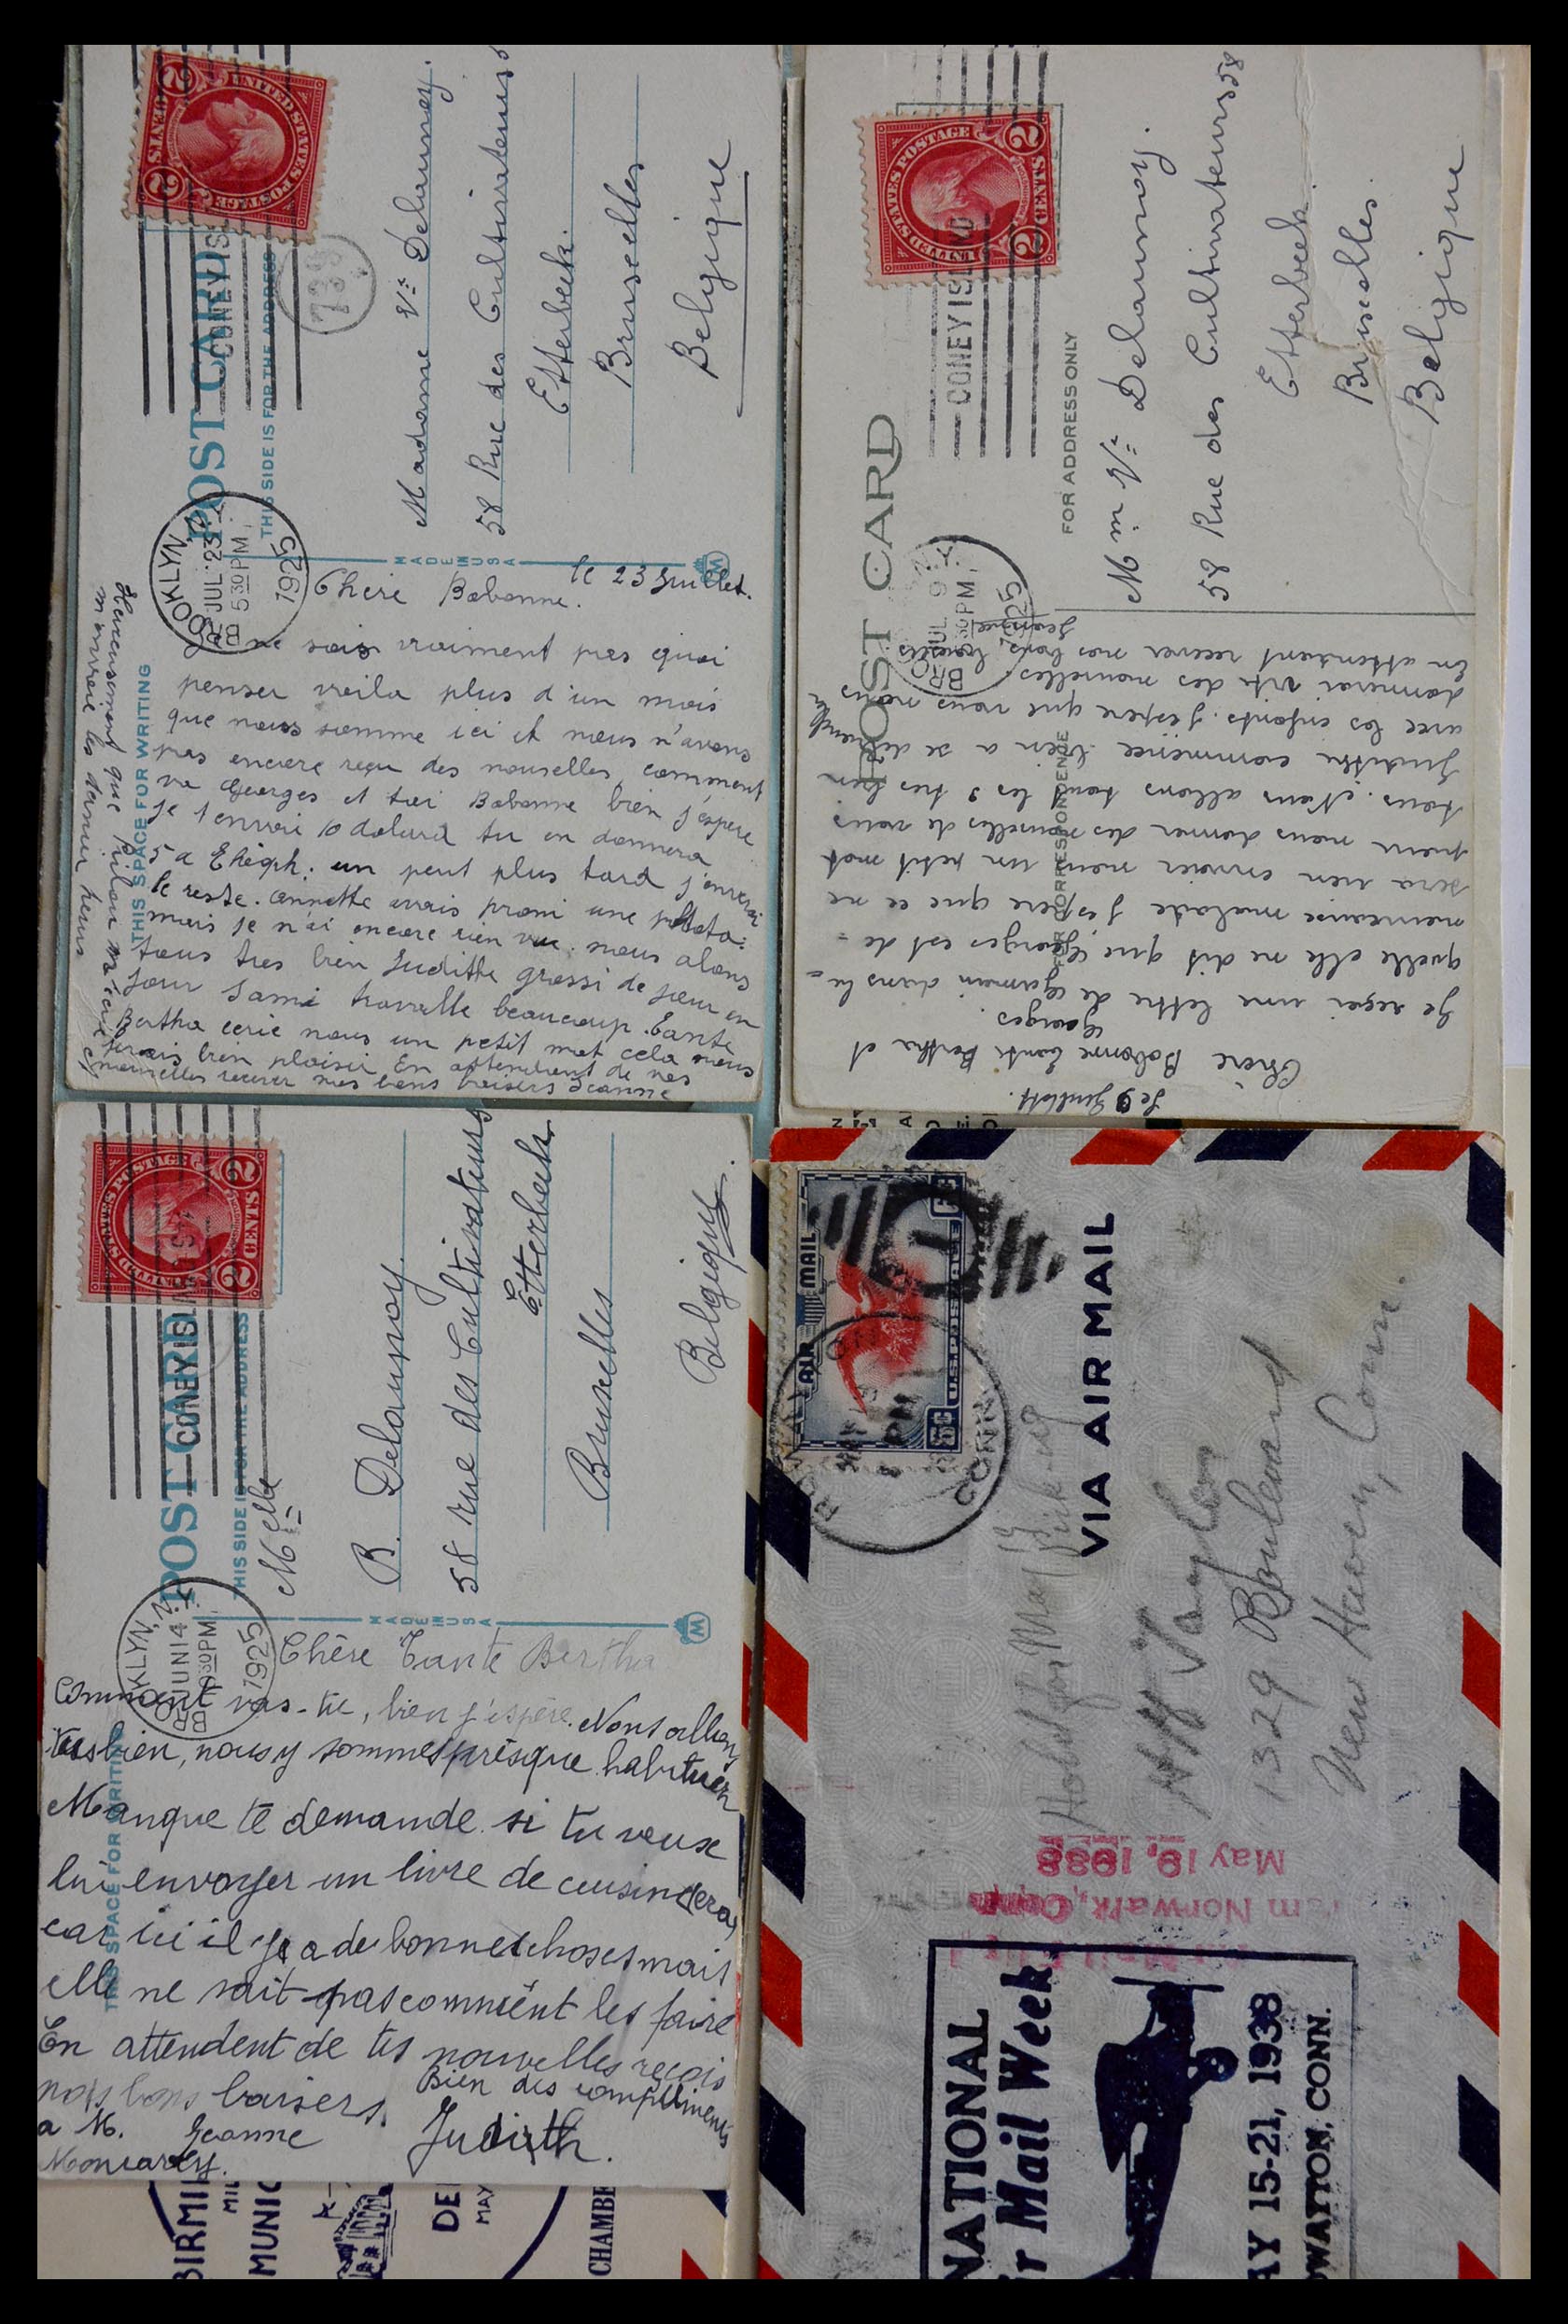 POST CARD
THIS SIDE IS FOR THE ADDRESS
THIS SPACE FOR WRITING
MADE IN USA
UNITED STATES POSTAGE
2 CENTS 2
CONEY ISL
739
BROOKLYN, N.Y.
JUL 23
530 PM
1925
Madame Vᵉ Delauney.
58 Rue des Cultivateurs
Etterbeek.
Bruxelles
Belgique
le 23 Juillet.
Chère Bobonne.
Je ne sais vraiment pas quoi
penser voila plus d'un mois
que nous somme ici et nous n'avons
pas encore reçu des nouvelles, comment
va Georges et toi Bobonne bien j'espere
je t'envoi 10 dolard tu en donnera
5 a Théoph. un peut plus tard j'enverai
le reste. Annette avais promi une photo
mais je n'ai encore rien vu. nous alons
tous tres bien Juditte grossi de jour en
jour Sami travalle beaucoup. Tante
Bertha ecrie nous un petit mot cela nous
ferais bien plaisir En attendent de vos
nouvelles recever mes bons baisers Jeanne
Heureusement que
les dernier
POST CARD
FOR ADDRESS ONLY
FOR CORRESPONDENCE
UNITED STATES POSTAGE
2 CENTS 2
CONEY ISLAND
BRO N.Y.
JUL 9
30PM
1925
Mᵐ Vᵉ Delaunoy.
58 Rue des Cultivateurs 58
Etterbeek.
Bruxelles.
Belgique
Le 9 Juillett.
Chère Bobonne Tante Bertha et
Georges
Je reçoi une lettre de Germain dans la-
quelle elle ne dit que Georges est de-
nouveaux malade j'espere que ce ne
sera rien envoier nous un petit mot
pour nous donner des nouvelles de vous
tous. Nous allons tout les 3 tres bien
Juditte commence bien a se debrouiller
avec les enfants. J'espere que vous nous
donnerai vite des nouvelles
En attendent recever nos bons baisers
Jeanne
POST CARD
THIS SIDE IS FOR THE ADDRESS
THIS SPACE FOR WRITING
MADE IN USA
UNITED STATES POSTAGE
2 CENTS 2
CONEY ISLAND
BROOKLYN, N.Y.
JUN 14
30PM
1925
Melle
B. Delaunoy
58 rue des Cultivateurs
Etterbeek
Bruxelles
Belgique.
Chère Tante Bertha
Comment vas-tu, bien j'espère. Nous allons
très bien, nous y sommes presque habituer
Manque te demande si tu veux
lui envoyer un livre de cuisine
car ici il y a de bonnes choses mais
elle ne sait pas comment les faire
En attendent de tes nouvelles reçois
nos bons baisers.
Bien des compliments
a M. Jeanne
Judith.
AIR MAIL
U.S. POSTAGE
6c
CONN.
VIA AIR MAIL
Hold for May 19
Pick-up
Taylor
1329 Boulevard
New Haven, Conn.
May 19, 1938
am Norwalk, Conn
NATIONAL
ir Mail Week
AY 15-21, 1938
OWATTON, CONN.
BIRMI
MIL
MUNIC
DE
MAY
CHAMBE